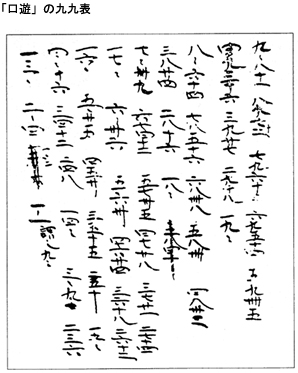 「口遊」の九九表
九〻八十一 八九七十二 七九六十三 六九五十四 五九卌五
四九三十六 三九廿七 二九十八 一九〻
八〻六十四 七八五十六 六八卌八 五八卌 四八卅二
三八廿四 二八十六 一八〻
七〻卌九 六七卌二 五七卅五 四七廿八 三七廿一 二七十四
一七〻 六〻卅六 五六卅 四六廿四 三六十八 二六十二
一六〻 五〻廿五 四五廿〻 三五十五 二五十 一五〻
四〻十六 三四十二 二四八 一四〻 三〻九 二三六
一三〻 二〻四 一二 一〻一 謂之九〻